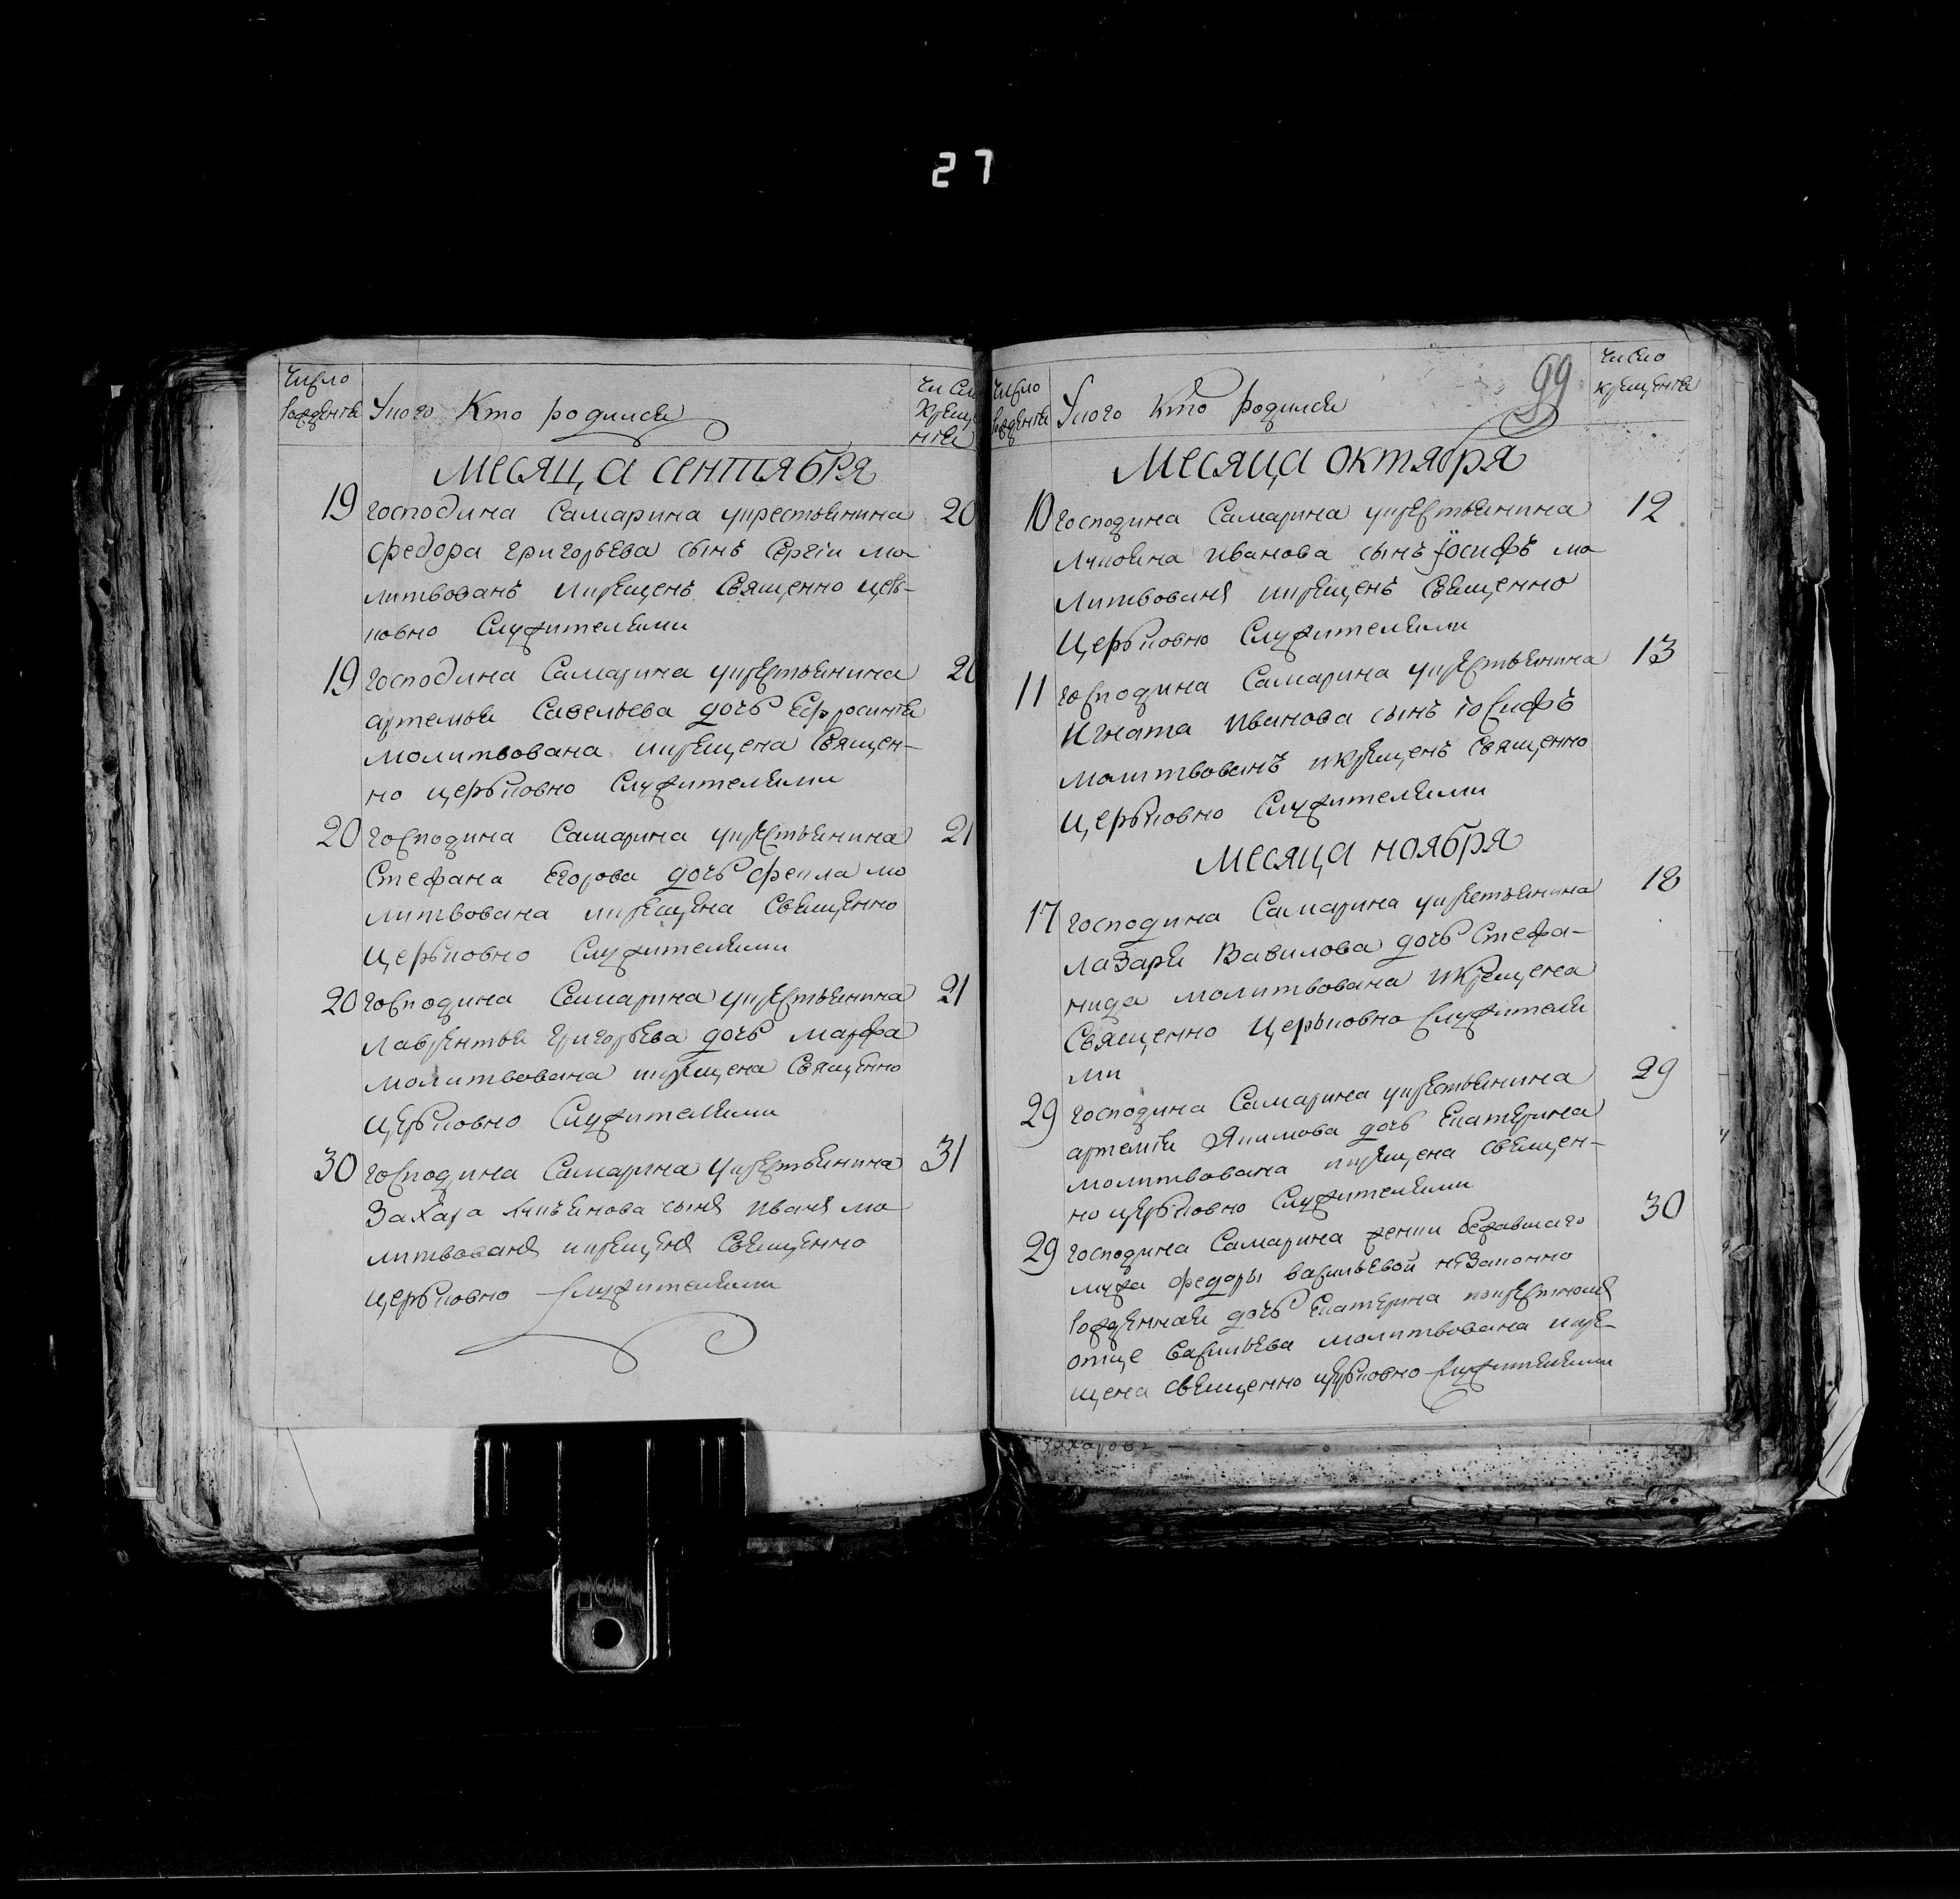 27
Число рожденiя
Укого Кто родился
Число крещенiя
Месяца сентября
19 господина Самарина укрестьянина 20
федора григорьева сынъ Сергiи мо
литвованъ икрещенъ Священно церь-
ковно Служителями
19 господина Самарина укрестьянина 20
артемья Савельева дочь Ефросинiя
молитвована икрещена Священ-
но церьковно Служителями
20 господина Самарина укрестьянина 21
Стефана Егорова дочь фекла мо
литвована икрещена Священно
Церьковно Служителями
20 господина Самарина укрестьянина 21
Лаврентья григорьева дочь марфа
молитвована икрещена Священно
Церьковно Служителями
30 господина Самарина укрестьянина 31
Захара лукьянова сынъ иванъ мо
литвованъ икрещенъ Священно
церьковно Служителями
Число рожденiя
Укого Кто родился
99
Число крещенiя
Месяца октября
10 господина Самарина укрестьянина 12
Лукояна иванова сынъ Iосифъ мо
литвованъ икрещенъ Священно
Церьковно Служителями
11 господина Самарина укрестьянина 13
Игната иванова сынъ iосифъ
молитвованъ икрещенъ Священно
Церьковно Служителями
Месяца ноября
17 господина Самарина укрестьянина 18
лазаря Вавилова дочь Стефа-
нида молитвована икрещена
Священно Церьковно Служителя
ми
29 господина Самарина укрестьянина 29
артемiя Якимова дочь Екатерина
молитвована икрещена Священ-
но церьковно Служителями
29 господина Самарина женки бежавшаго 30
мужа федоры васильевой незаконно
рожденная дочь Екатерина покрестномъ
отце Васильева молитвована икре-
щена Священно церьковно Служителями
захаровъ